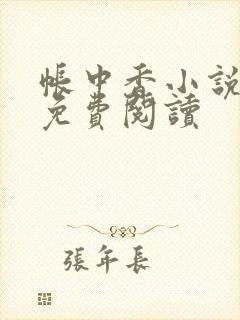 帳中香小説
免費閱讀
張年長